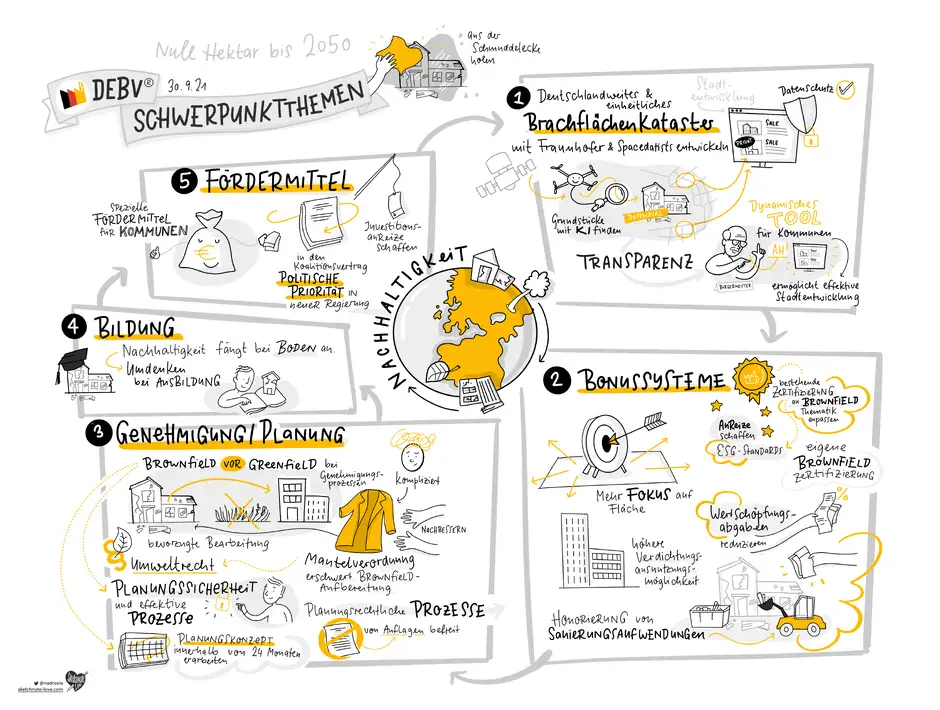 Null Hektar bis 2050
aus der
Schmuddelecke
holen
DEBV®
30.9.21
SCHWERPUNKTTHEMEN
1 Deutschlandweites &
einheitliches
Brachflächenkataster
mit Fraunhofer & Spacedatists entwickeln
Stadt-
entwicklung
Datenschutz
SALE
PRIVAT
SALE
Grundstücke
mit KI finden
POTENZIAL
TRANSPARENZ
Dynamisches
TOOL
für Kommunen
AH!
BÜRGERMEISTER
ermöglicht effektive
Stadtentwicklung
2 BONUSSYSTEME
bestehende
Zertifizierung
an BROWNFIELD
Thematik
anpassen
Anreize
schaffen
ESG-STANDARDS
eigene
BROWNFIELD
Zertifizierung
Mehr FOKUS auf
Fläche
höhere
Verdichtungs-
ausnutzungs-
möglichkeit
Wertschöpfungs-
abgaben
reduzieren
%
Honorierung von
SANIERUNGSAUFWENDUNGEN
3 GENEHMIGUNG/PLANUNG
BROWNFIELD VOR GREENFIELD bei
Genehmigungs-
prozessen
kompliziert
bevorzugte Bearbeitung
NACHBESSERN
§ Umweltrecht
Mantelverordnung
erschwert BROWNFIELD-
Aufbereitung
PLANUNGSSICHERHEIT
und effektive
PROZESSE
Planungsrechtliche PROZESSE
von Auflagen befreit
PLANUNGSKONZEPT
innerhalb von 24 Monaten
erarbeiten
4 BILDUNG
Nachhaltigkeit fängt bei BODEN an.
Umdenken
bei AUSBILDUNG
5 FÖRDERMITTEL
SPEZIELLE
FÖRDERMITTEL
für KOMMUNEN
€
in den
Koalitionsvertrag
POLITISCHE
PRIORITÄT IN
neueR Regierung
Investitions-
anReize
schaffen
NACHHALTIGKEIT
@nadrosia
sketchnote-love.com